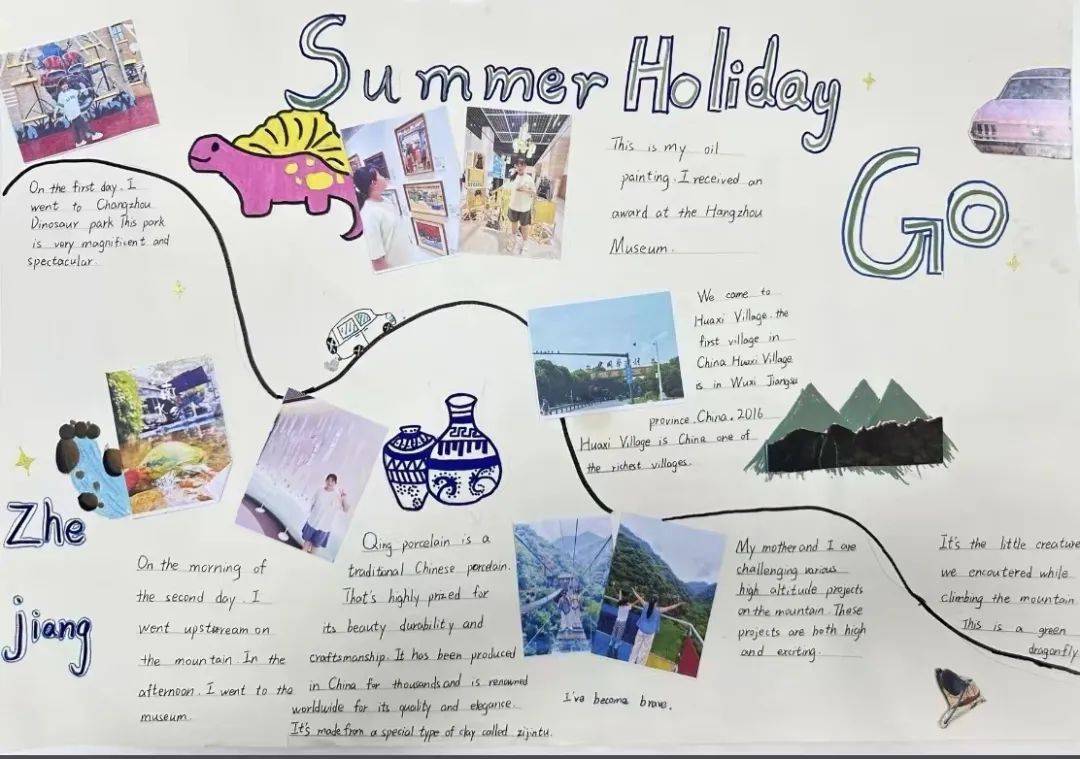 Summer Holiday
Go
On the first day. I
went to Changzhou
Dinosaur park This park
is very magnifient and
spectacular.
This is my oil
painting. I received an
award at the Hangzhou
Museum.
We come to
Huaxi Village. the
first village in
China Huaxi Village
is in Wuxi Jiangsu
province. China. 2016
Huaxi Village is China one of
the richest villages.
Zhe
jiang
On the morning of
the second day. I
went upstream on
the mountain. In the
afternoon. I went to the
museum.
Qing porcelain is a
traditional Chinese porcelain.
That's highly prized for
its beauty durability and
craftsmanship. It has been produced
in China for thousands and is renowned
worldwide for its quality and elegance.
It's made from a special type of clay called zijintu.
I've become brave.
My mother and I are
challenging various
high altitude projects
on the mountain. These
projects are both high
and exciting.
It's the little creature
we encoutered while
climbing the mountain
This is a green
dragonfly